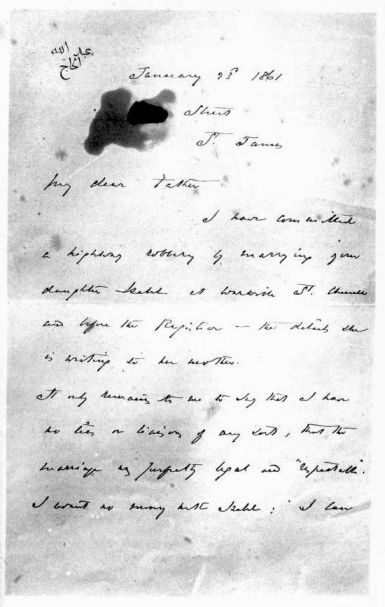 عبد الله
الحاج
January 23rd 1861
Street
St. James
My dear Father
I have committed
a highway robbery by marrying your
daughter Isabel at Warwick St. Church
and before the Registrar — the details she
is writing to her mother.
It only remains to me to say that I have
no ties or liaisons of any sort, that the
marriage was perfectly legal and "respectable".
I want no money with Isabel; I can